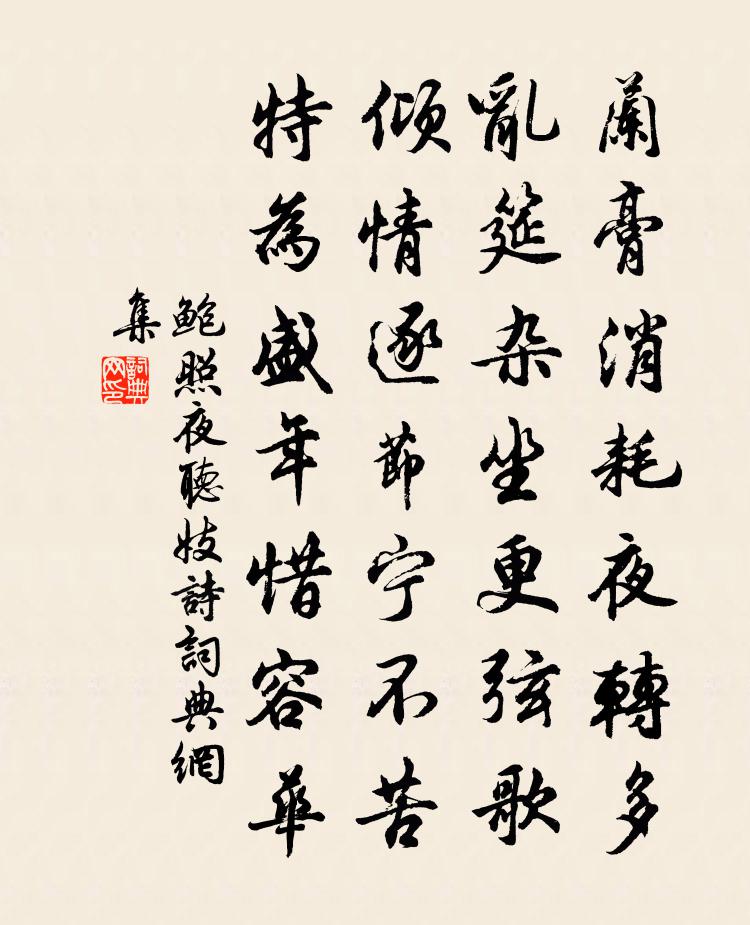 蘭膏消耗夜轉多
亂筵杂坐更弦歌
傾情逐節宁不苦
特為盛年惜容華
鮑照夜聽妓詩詞典網
集
詞典
网印